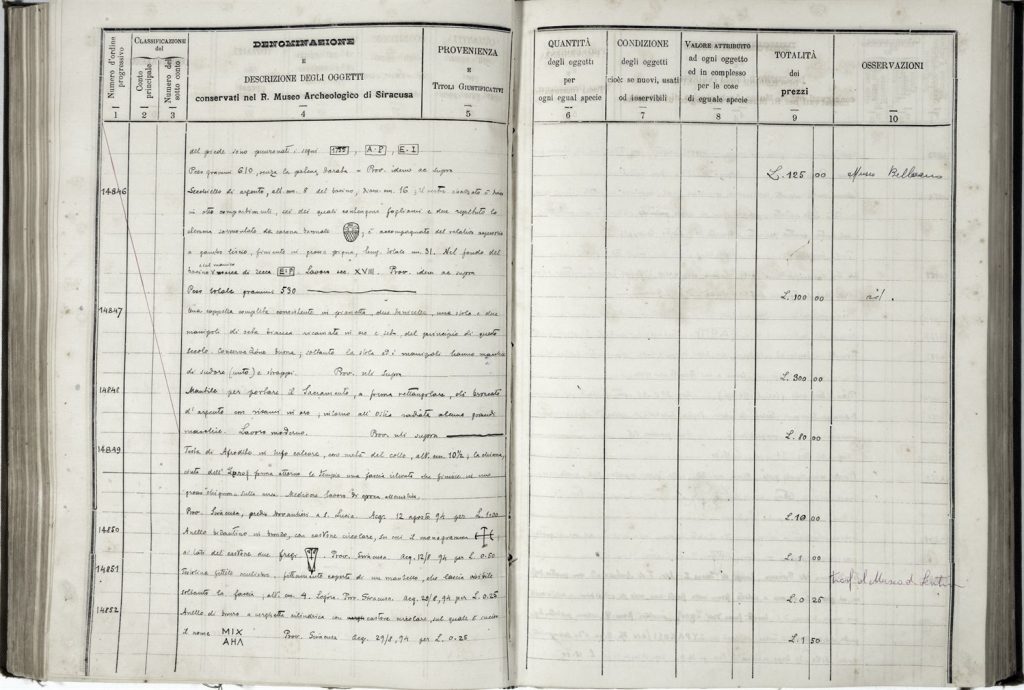 Numero d'ordine progressivo
CLASSIFICAZIONE
del
Conto principale
Numero del sotto conto
DENOMINAZIONE
E
DESCRIZIONE DEGLI OGGETTI
conservati nel R. Museo Archeologico di Siracusa
PROVENIENZA
E
TITOLI GIUSTIFICATIVI
1 2 3 4 5
del piede sono punzonati i segni A·P, E·I
Peso grammi 610, senza la patena Prov. idem ac supra
14846 Secchiello di argento, alt. cm. 8 del bacino, diam. cm. 16, il
in otto compartimenti, sei dei quali contengono fogliami e due
sormontato da corona; è accompagnato del relativo aspersorio
a gambo liscio, finiente in grossa pigna, lung. totale cm. 31. Nel fondo del
e nel manico
bacino marca di zecca E·P. Lavoro sec. XVIII. Prov. idem ac supra
Peso totale grammi 530
14847 Una cappella completa consistente in pianeta, due tonicelle, una stola e due
manipoli di seta bianca ricamata in oro e seta, del principio di questo
secolo. Conservazione buona; soltanto la stola ed i manipoli hanno macchie
di sudore (unto) e strappi. Prov. uti supra
14848 Mantile per portare il Sacramento, a forma rettangolare, di broccato
d'argento con ricami in oro; intorno all'Ostia radiata alcune grandi
macchie. Lavoro moderno. Prov. uti supra
14849 Testa di Afrodite in tufo calcare, con metà del collo, alt. cm. 10½; la chioma,
forma attorno le tempie una fascia rilevata che finisce in un
grosso chignon sulla nuca. Mediocre lavoro di epoca
Prov. Siracusa, predio Novantieri a S. Lucia Acq. 12 agosto 94 per L. 1.00
14850 Anello bizantino in bronzo, con castone circolare, su cui il monogramma
ai lati del castone due fregi. Prov. Siracusa. Acq. 12/8 94 per L. 0.50
14851 Testolina fittile muliebre, fittamente coperta di un mantello, che lascia visibile
soltanto la faccia; alt. cm. 4. Prov. Siracusa. Acq. 29/8, 94 per L. 0.25
14852 Anello di bronzo a verghetta cilindrica con castone circolare, sul quale è inciso
il nome MIX
AHΛ Prov. Siracusa Acq. 29/8, 94 per L. 0.25
QUANTITÀ
degli oggetti
per
ogni egual specie
CONDIZIONE
degli oggetti
cioè: se nuovi, usati
od inservibili
VALORE ATTRIBUITO
ad ogni oggetto
ed in complesso
per le cose
di eguale specie
TOTALITÀ
dei
prezzi
OSSERVAZIONI
6 7 8 9 10
L. 125 00 Museo Bellomo
L. 100 00 id.
L. 300 00
L. 80 00
L. 10 00
L. 1 00
L. 0 25
L. 1 50